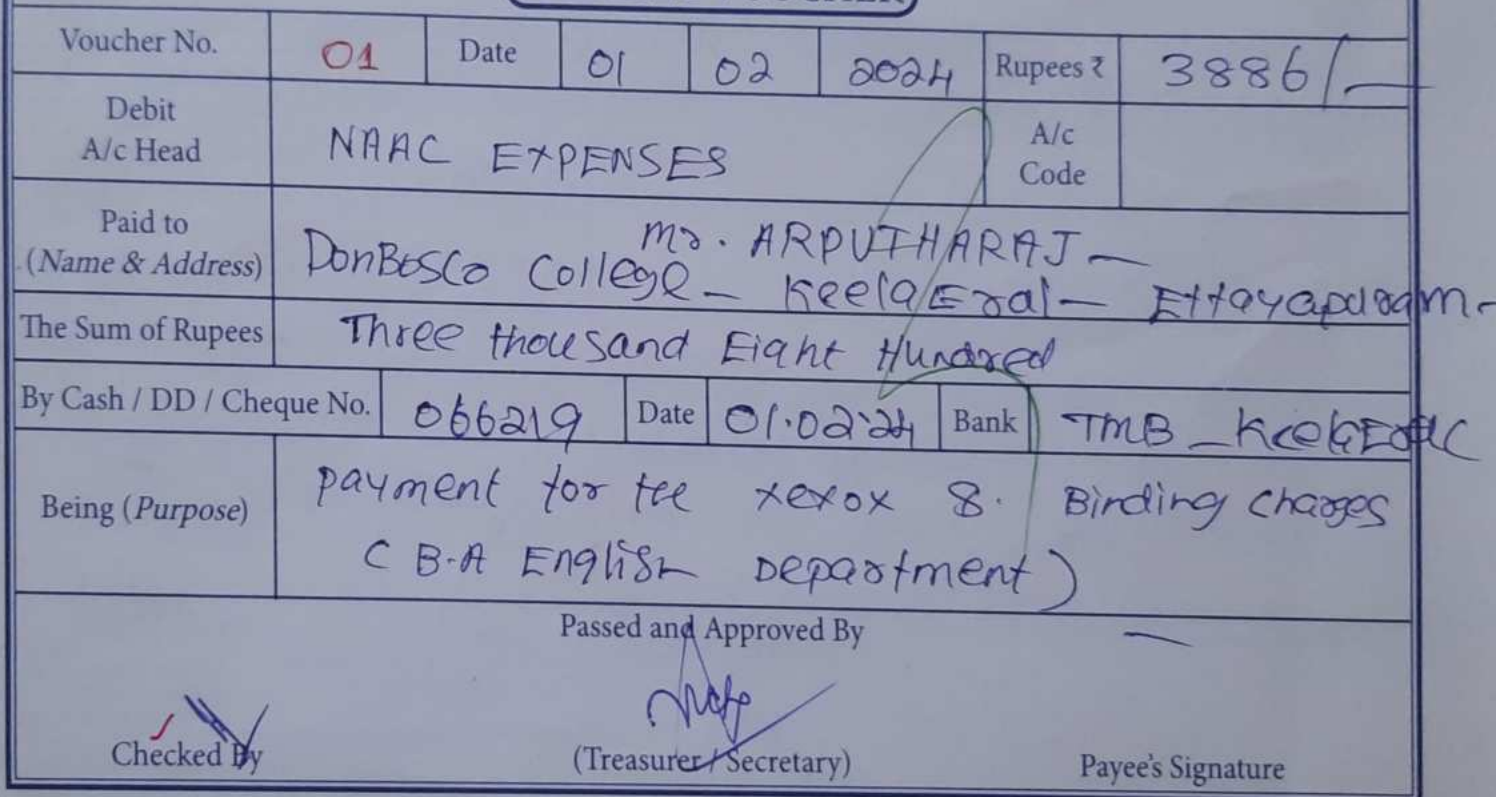 Voucher No. 01 Date 01 02 2024 Rupees ₹ 3886/-
Debit A/c Head NAAC EXPENSES A/c Code
Paid to (Name & Address) Mr. ARPUTHARAJ -
DonBosco College - KeelaEral - Ettayapuram -
The Sum of Rupees Three thousand Eight Hundred
By Cash / DD / Cheque No. 066219 Date 01.02.24 Bank TMB -
Being (Purpose) payment for tee xerox & Binding charges
( B.A English Department )
Passed and Approved By
Checked By (Treasurer / Secretary) Payee's Signature